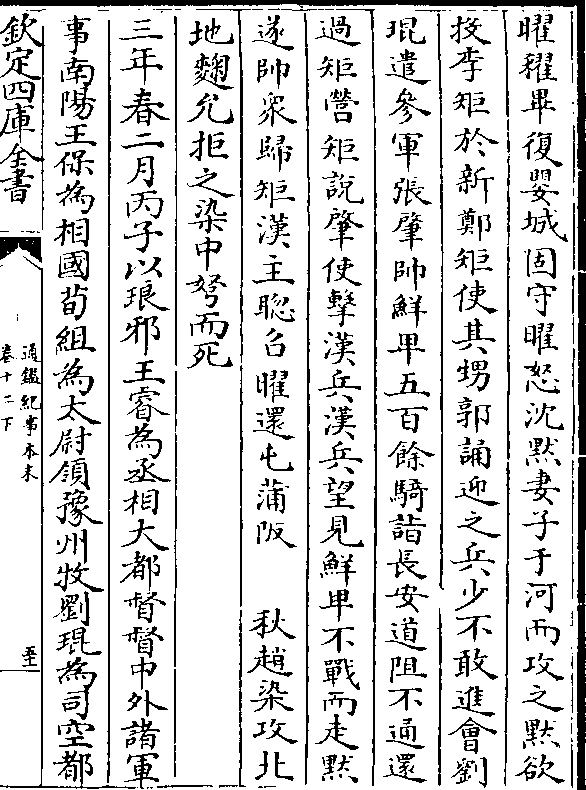 曜糴畢復嬰城固守曜怒沈黙妻子于河而攻之黙欲
投李矩於新鄭矩使其甥郭誦迎之兵少不敢進會劉
琨遣參軍張肇帥鮮卑五百餘騎詣長安道阻不通還
過矩營矩說肇使擊漢兵漢兵望見鮮卑不戰而走黙
遂帥衆歸矩漢主聰召曜還屯蒲阪　秋趙染攻北
地麴允拒之染中弩而死
三年春二月丙子以琅邪王睿為丞相大都督督中外諸軍
事南陽王保為相國荀組為太尉領豫州牧劉琨為司空都
欽定四庫全書
通鑑紀事本末
卷十二下